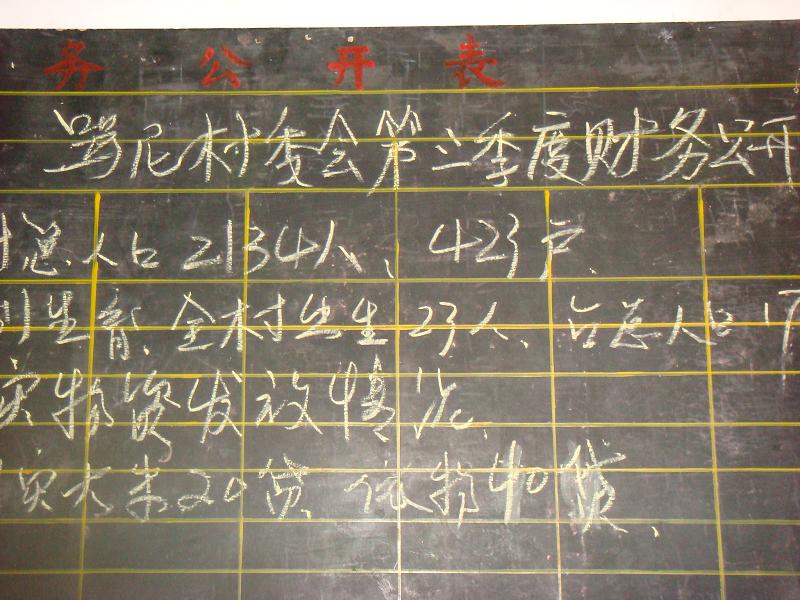 务公开表
尼村委会第三季度财务公开
总人口2134人、423户.
生育.全村出生23人、占总人口17
实物资发放情况.
实大米20袋.衣物40袋、